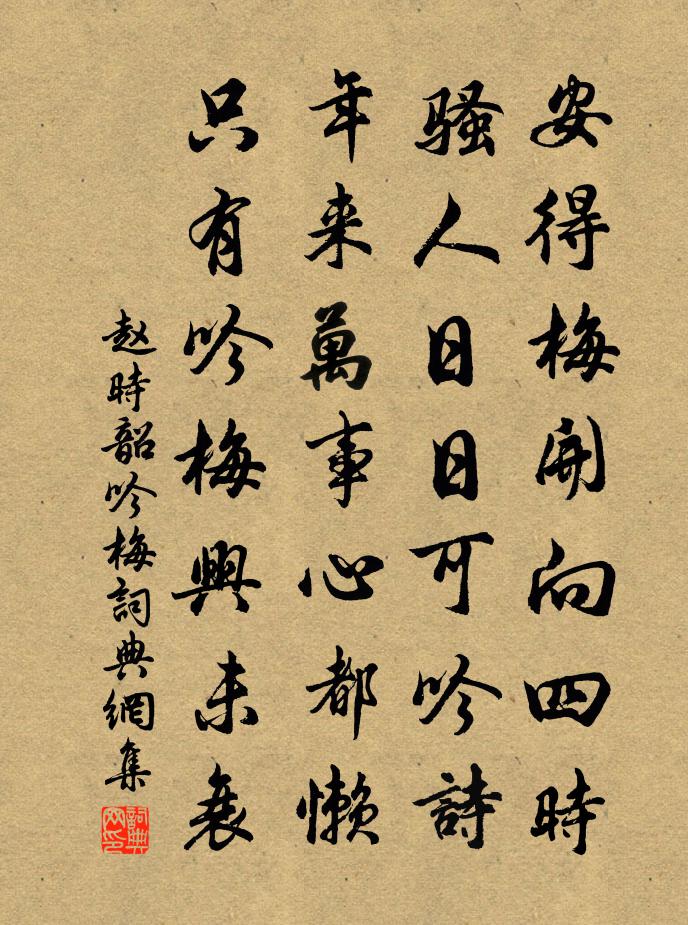 安得梅開向四時
騷人日日可吟詩
年来萬事心都懶
只有吟梅興未衰
赵時韶吟梅詞典網集
詞典网印